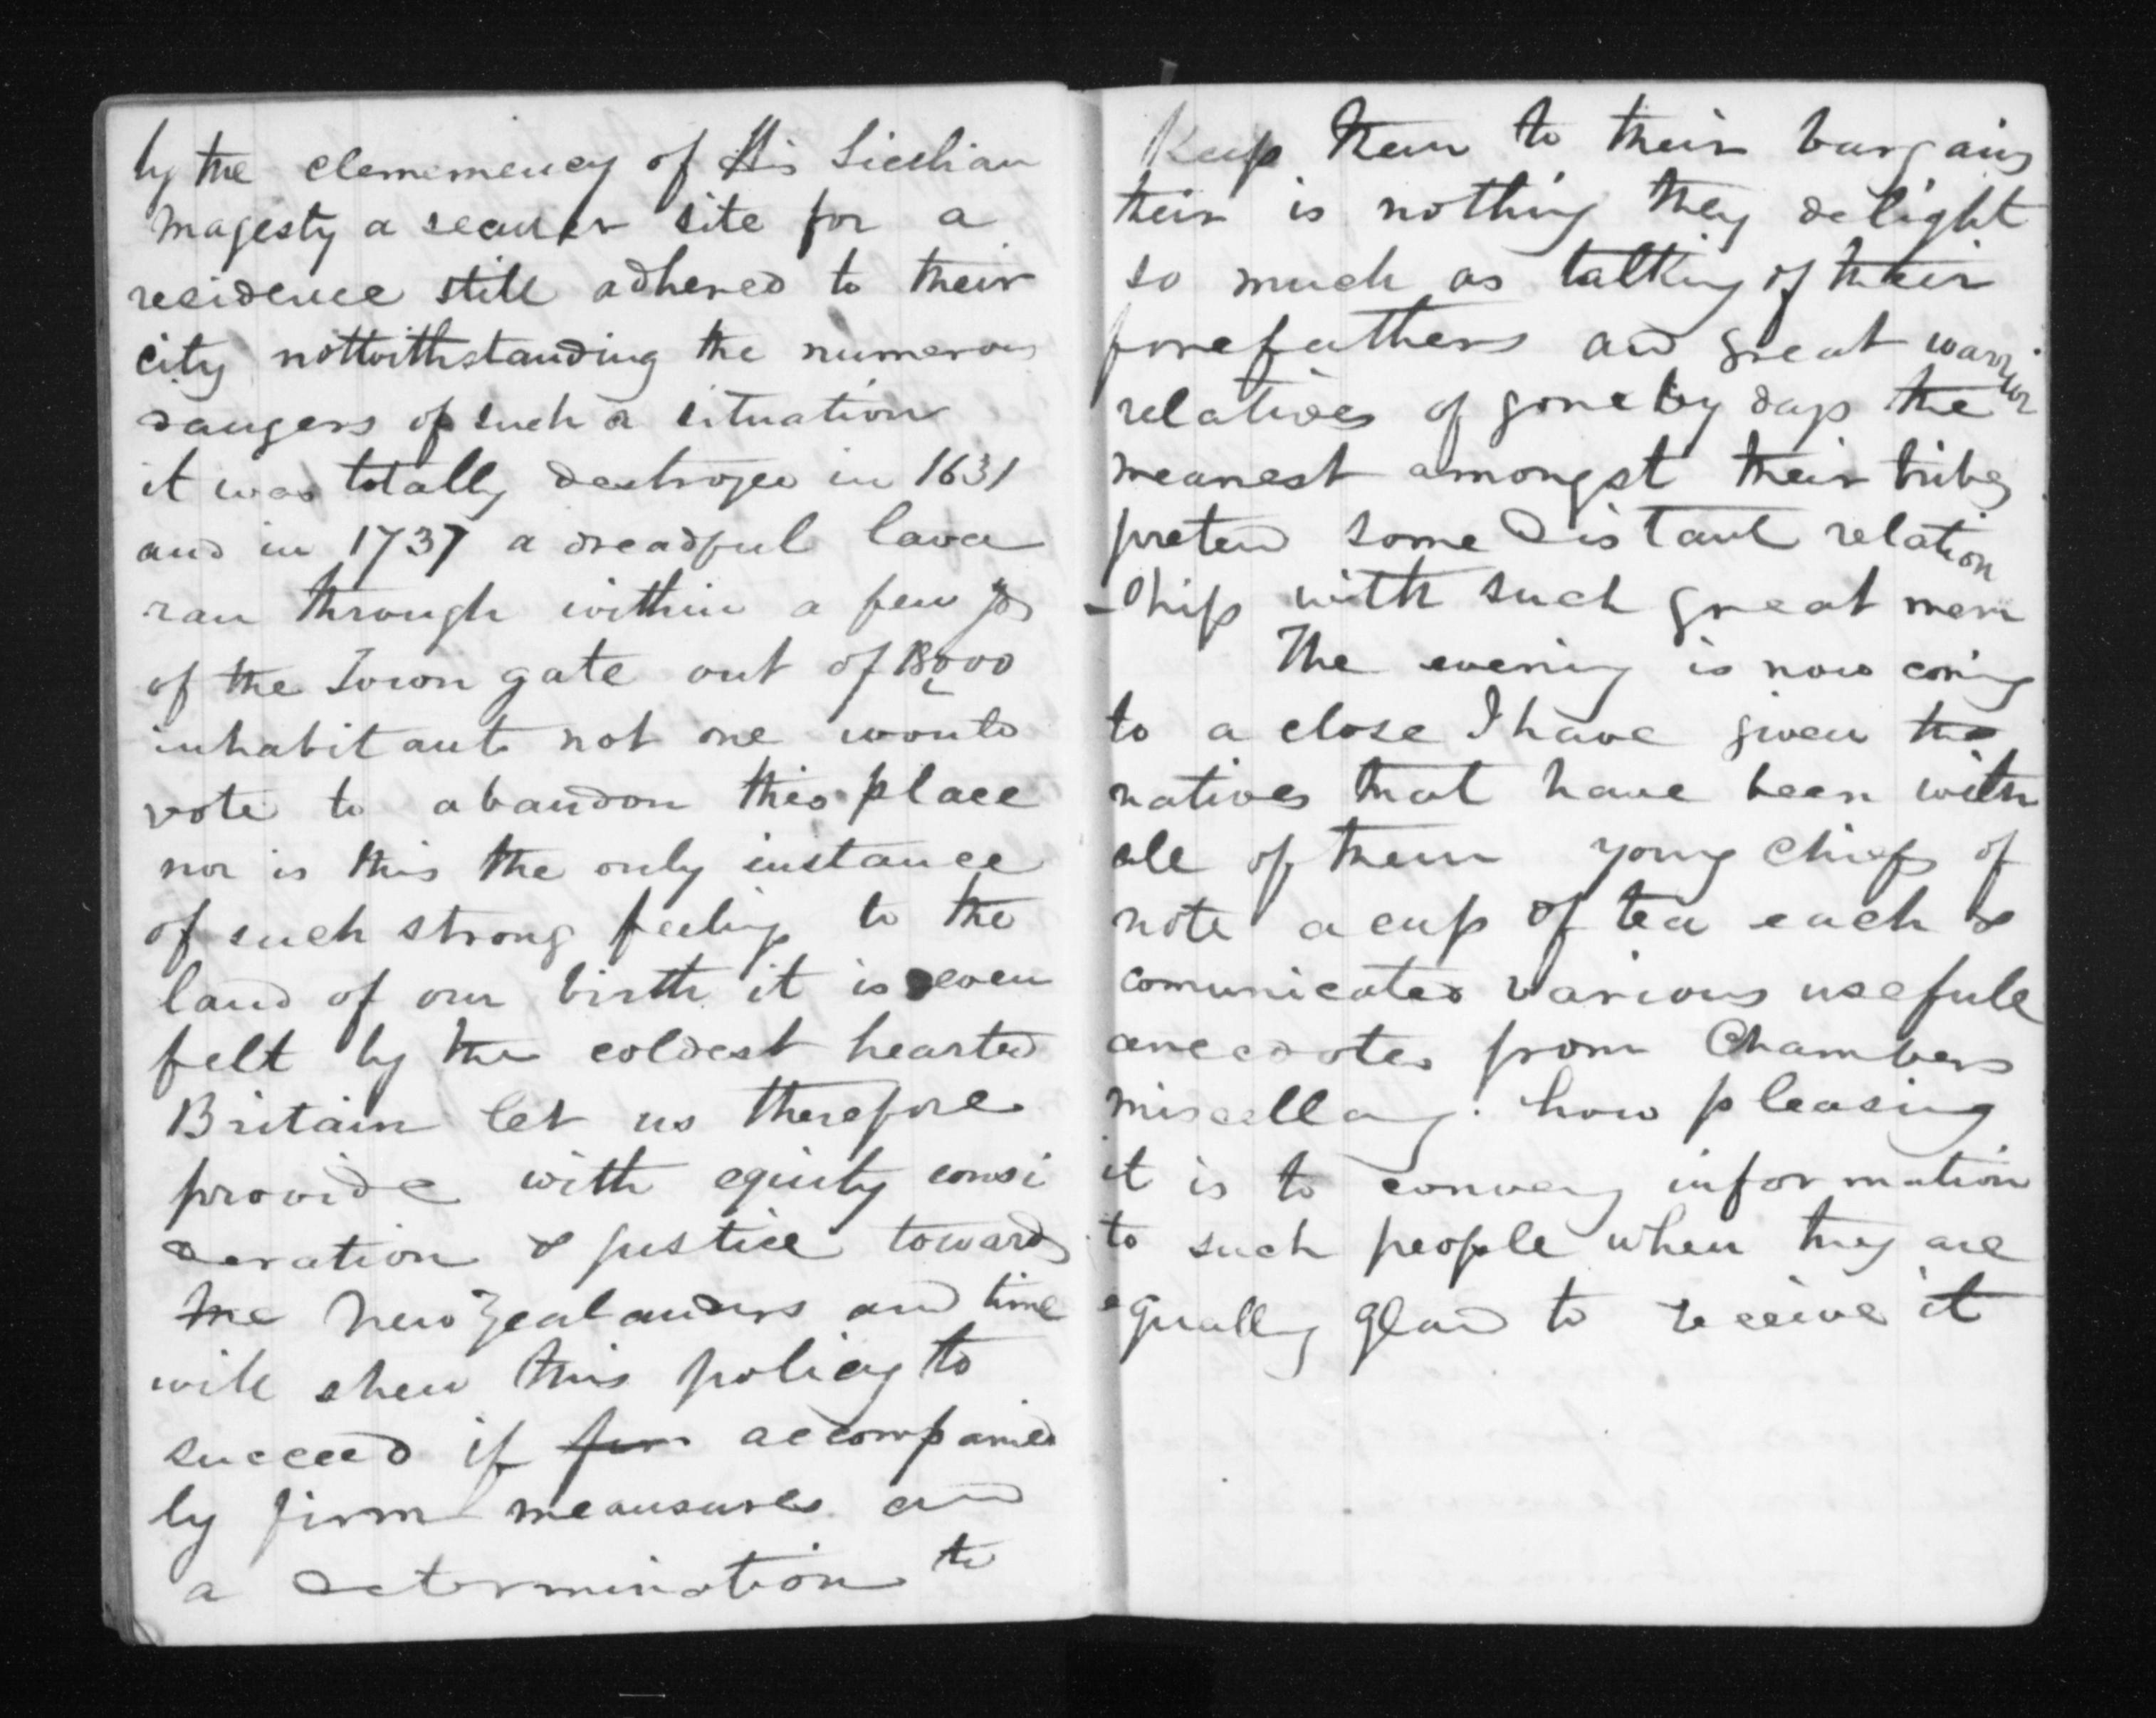 by the clememency of His Sicilian
magesty a securer site for a
residence still adhered to their
city nottwithstanding the numerous
dangers of such a situation
it was totally destroyed in 1631
and in 1737 a dreadful lava
ran through within a few yds
of the Town gate out of 18000
inhabitants not one would
vote to abandon this place
nor is this the only instance
of such strong feelings to the
land of our birth it is even
felt by the coldest hearted
Britain let us therefore
provide with equity consi
deration & justice towards
the New Zealanders and time
will shew this policy to
succeed if firm accompanied
by firm meansures and
a determination to
Keep them to their bargains
their is nothing they delight
so much as talking of their
forefathers and great warrior
relatives of gone by days the
meanest amongst their tribes
pretend some distant relation
-ship with such great men
The evening is now coming
to a close I have given the
natives that have been with
all of them young chiefs of
note a cup of tea each &
comunicated various usefull
anecdotes from Chambers
miscellany. how pleasing
it is to convey information
to such people when they are
equally glad to receive it